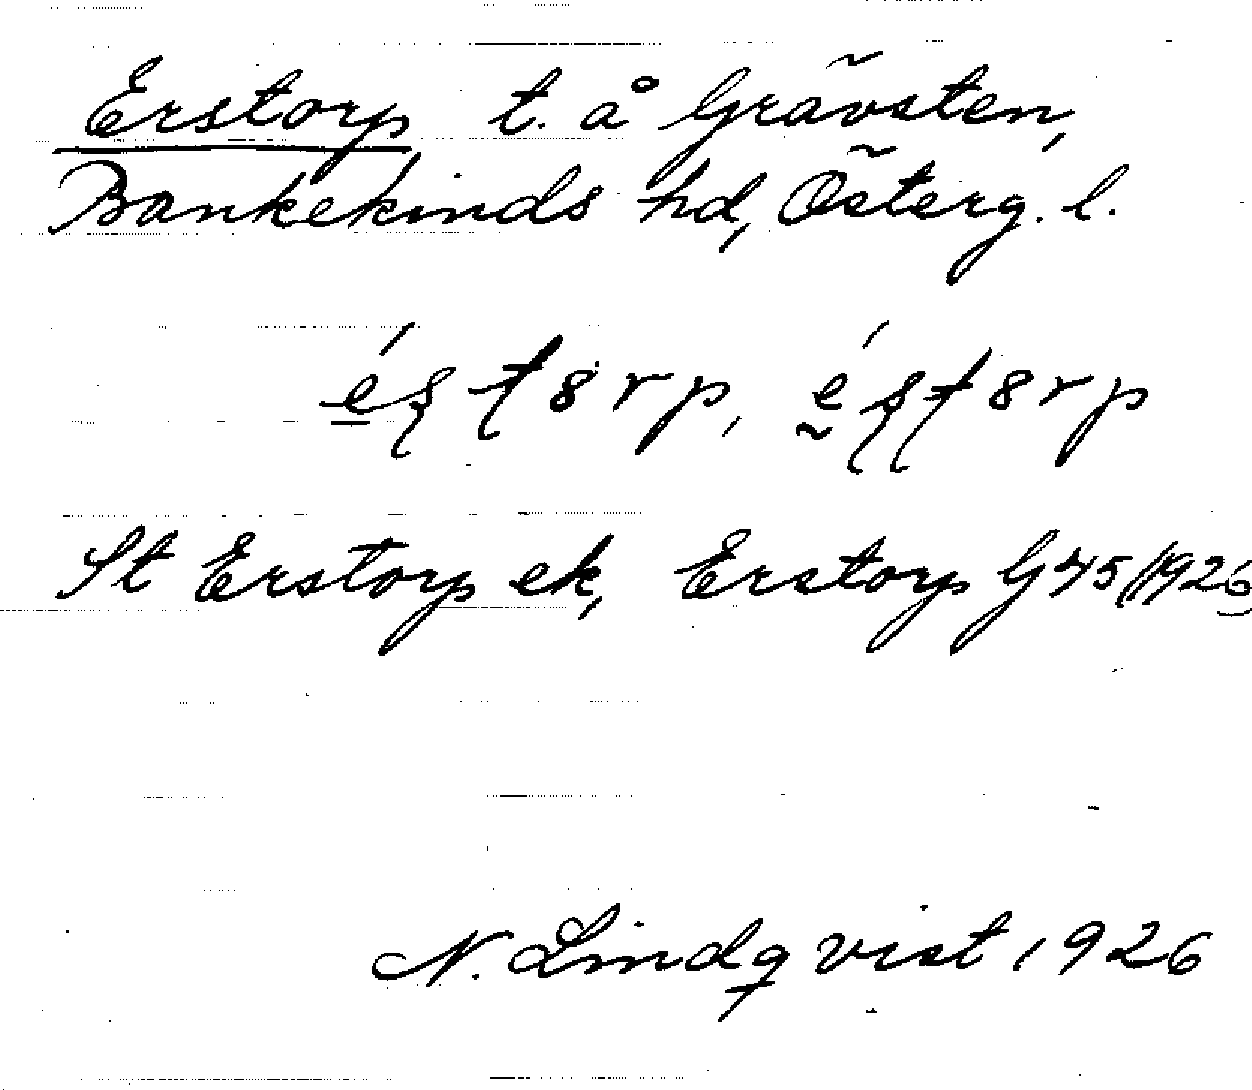 Erstorp t. å Grävsten,
Bankekinds hd, Österg. l.
St Erstorp ek, Erstorp G 45 1926
N. Lindqvist 1926